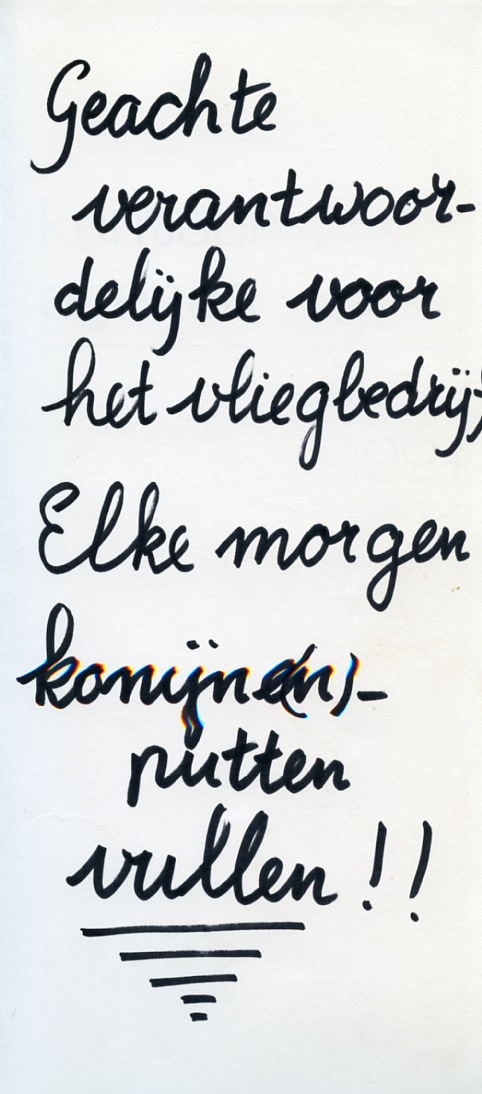 Geachte
verantwoor-
delijke voor
het vliegbedrijf
Elke morgen
konijne(n)-
putten
vullen!!